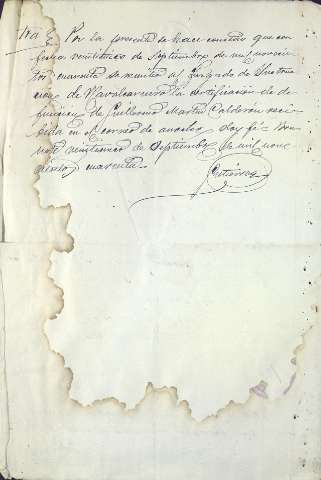 Por la presente se hace constar que con
fecha veinticinco de Septiembre de mil novecien
tos cuarenta se remitio al Juzgado de Instruc
cion de Navalcarnero la certificacion de de
funcion de Guillermo Martin Calderón reci
bida en el correo de Doy fé.
veinticinco de Septiembre de mil nove
cientos cuarenta.-
Gutiérrez